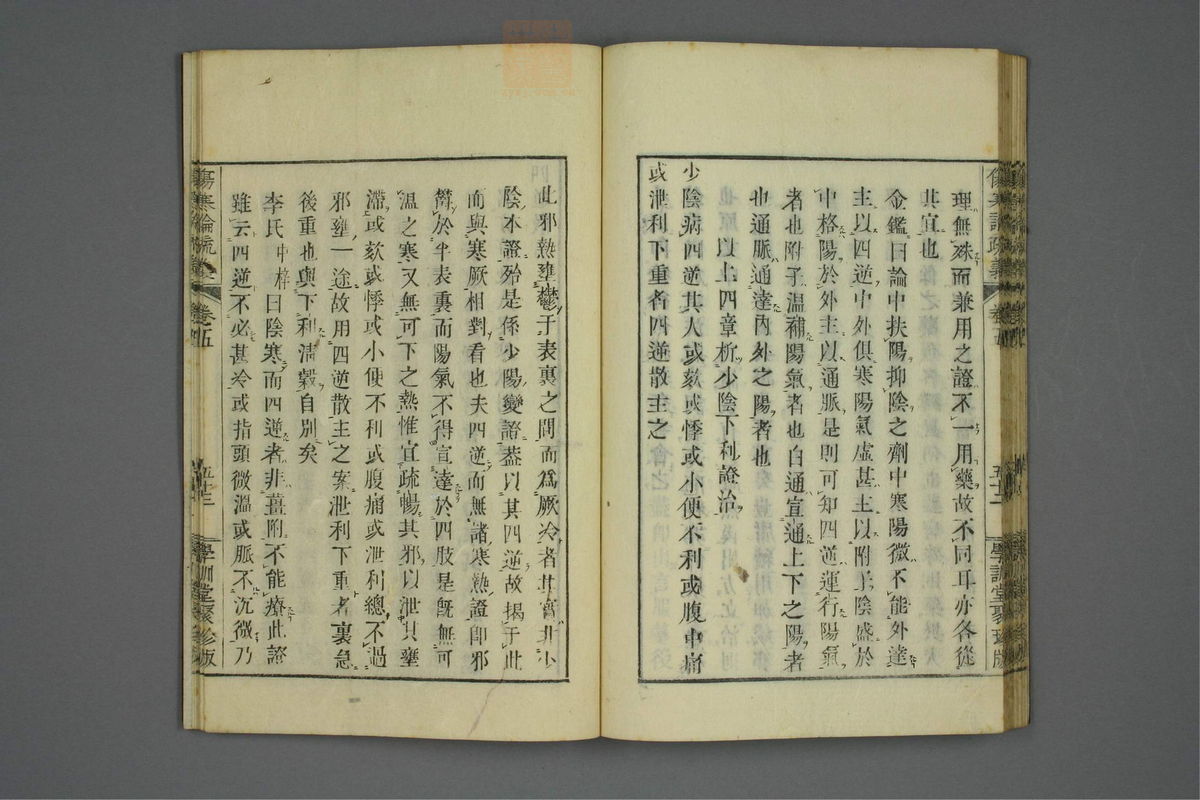 傷寒論疏義
卷五
五十二
學訓堂聚珍版
理無殊而兼用之證不一用藥故不同耳亦各從
其宜也
金鑑曰論中扶陽抑陰之劑中寒陽微不能外達
主以四逆中外俱寒陽氣虛甚主以附子陰盛於
中格陽於外主以通脈是則可知四逆運行陽氣
者也附子溫補陽氣者也白通宣通上下之陽者
也通脈通達內外之陽者也
以上四章析少陰下利證治
少陰病四逆其人或欬或悸或小便不利或腹中痛
或泄利下重者四逆散主之
此邪熱壅鬱于表裏之間而爲厥冷者其實非少
陰本證殆是係少陽變證蓋以其四逆故揭于此
而與寒厥相對看也夫四逆而無諸寒熱證卽邪
鬱於半表裏而陽氣不得宣達於四肢是旣無可
溫之寒又無可下之熱惟宜疏暢其邪以泄其壅
滯或欬或悸或小便不利或腹痛或泄利總不過
邪壅一途故用四逆散主之案泄利下重者裏急
後重也與下利清穀自別矣
李氏中梓曰陰寒而四逆者非薑附不能療此證
雖云四逆不必甚冷或指頭微溫或脈不沉微乃
傷寒論疏義
卷五
五十三
學訓堂聚珍版